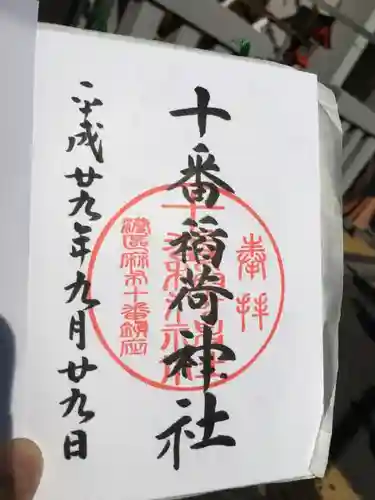 奉拝
十番稲荷神社
十番稲荷神社
港区麻布十番鎮座
平成廿九年九月廿九日